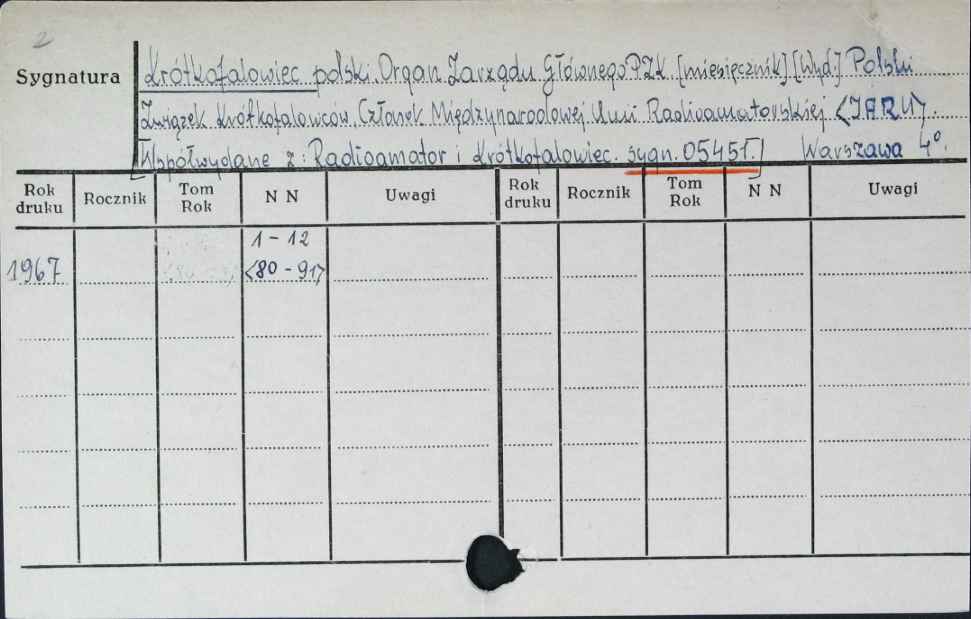 2
Sygnatura Krótkofalowiec polski. Organ Zarządu Głównego PZK. [miesięcznik] [Wyd:] Polski
Związek Krótkofalowców. Członek Międzynarodowej Unii Radioamatorskiej <IARU>.
[Współwydane z: Radioamator i Krótkofalowiec. sygn. 05451.] Warszawa 4°.
Rok druku Rocznik Tom Rok N N Uwagi Rok druku Rocznik Tom Rok N N Uwagi
1-12
1967 <80-91>